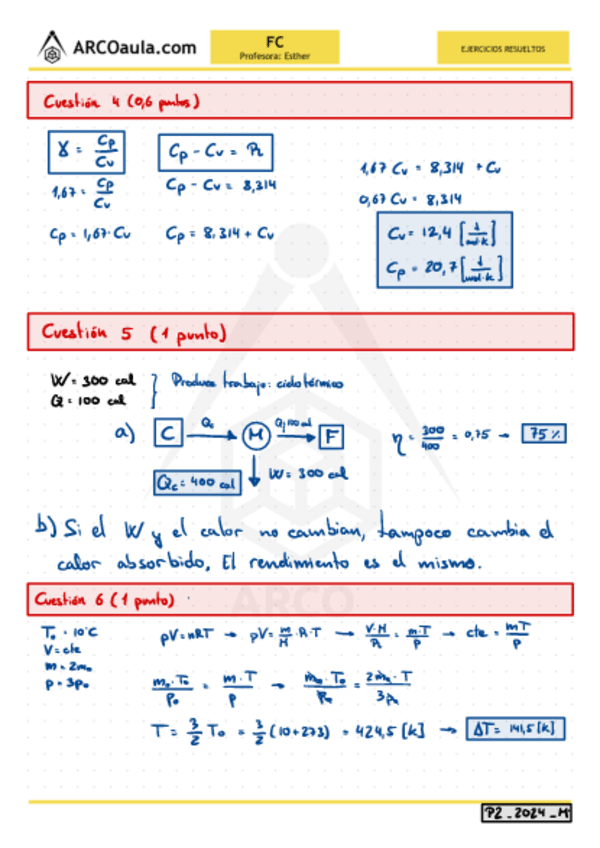 ARCOaula.com
FC
Profesora: Esther
EJERCICIOS RESUELTOS
Cuestión 4 (0,6 puntos)
γ = Cp/Cv
Cp - Cv = R
1,67 = Cp/Cv
Cp - Cv = 8,314
Cp = 1,67·Cv
Cp = 8,314 + Cv
1,67 Cv = 8,314 + Cv
0,67 Cv = 8,314
Cv = 12,4 [J/mol·K]
Cp = 20,7 [J/mol·K]
Cuestión 5 (1 punto)
W = 300 cal
Q = 100 cal
} Produce trabajo: ciclo térmico
a) C Qc M Qf 100 cal F
Qc = 400 cal
W = 300 cal
η = 300/400 = 0,75 → 75 %
b) Si el W y el calor no cambian, tampoco cambia el
calor absorbido. El rendimiento es el mismo.
Cuestión 6 (1 punto)
T₀ = 10°C
V = cte
m = 2m₀
p = 3p₀
pV = nRT → pV = m/M · R·T → V·M/R = m·T/p → cte = mT/p
m₀·T₀/p₀ = m·T/p → m₀·T₀/p₀ = 2m₀·T/3p₀
T = 3/2 T₀ = 3/2 (10+273) = 424,5 [K] → ΔT = 141,5 [K]
ARCO
P2_2024_M